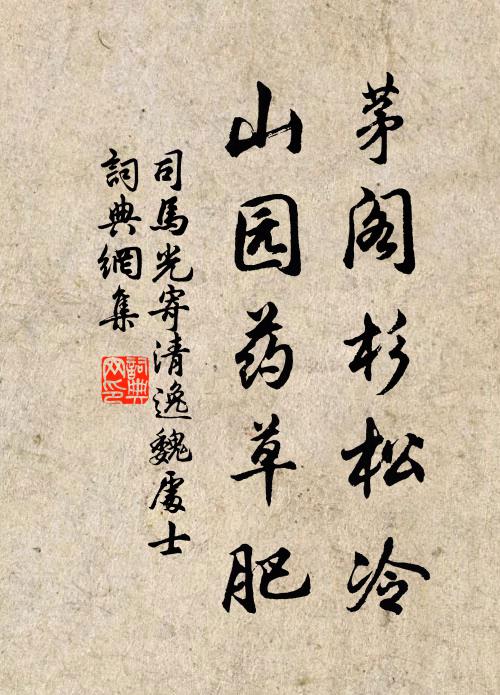 茅阁杉松冷
山园药草肥
司馬光寄清逸魏處士
詞典網集
詞典
网印